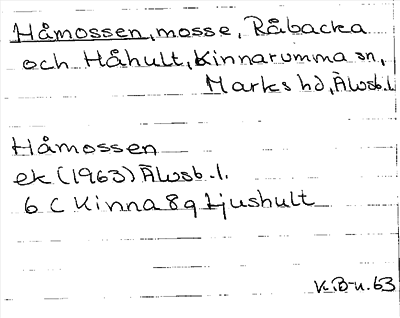 Håmossen, mosse, Råbacka
och Håhult, Kinnarumma sn,
Marks hd, Älvsb. l.
Håmossen
ek (1963) Älvsb. l.
6 C Kinna 8g Ljushult
K.B-n. 63